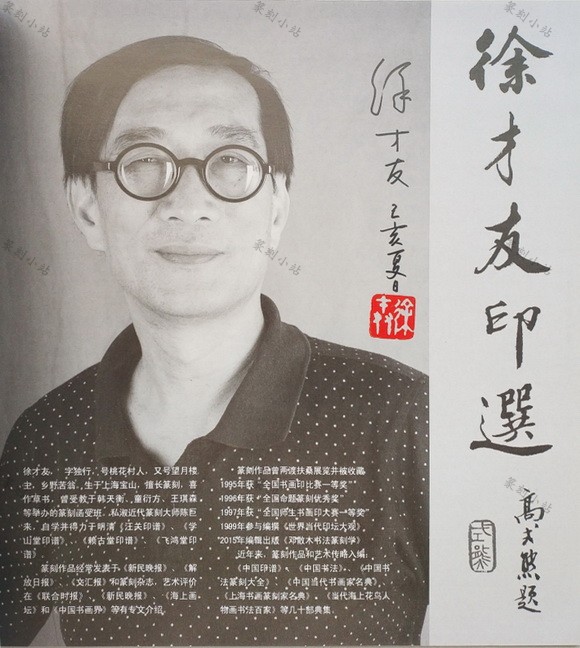 徐才友印選
高式熊題
徐才友
己亥夏日
徐才友, 字独行, 号桃花村人, 又号望月楼
主, 乡野苦翁, 生于上海宝山, 擅长篆刻, 喜
作草书, 曾受教于韩天衡、童衍方、王琪森
等举办的篆刻函授班, 私淑近代篆刻大师陈巨
来, 自学并得力于明清《汪关印谱》《学
山堂印谱》、《赖古堂印谱》、《飞鸿堂印
谱》
篆刻作品经常发表于《新民晚报》、《解
放日报》、《文汇报》和篆刻杂志, 艺术评价
在《联合时报》、《新民晚报》、《海上画
坛》和《中国书画界》等有专文介绍。
篆刻作品曾两渡扶桑展览并被收藏
1995年获“全国书画印比赛一等奖”
1996年获“全国命题篆刻优秀奖”
1997年获“全国师生书画印大赛一等奖”
1989年参与编撰《世界当代印坛大观》
2015年编辑出版《邓散木书法篆刻学》
近年来, 篆刻作品和艺术传略入编:
《中国印谱》、《中国书法》、《中国书
法篆刻大全》、《中国当代书画家名典》、
《上海书画篆刻家名典》、《当代海上花鸟人
物画书法百家》等几十部典集
篆刻小站